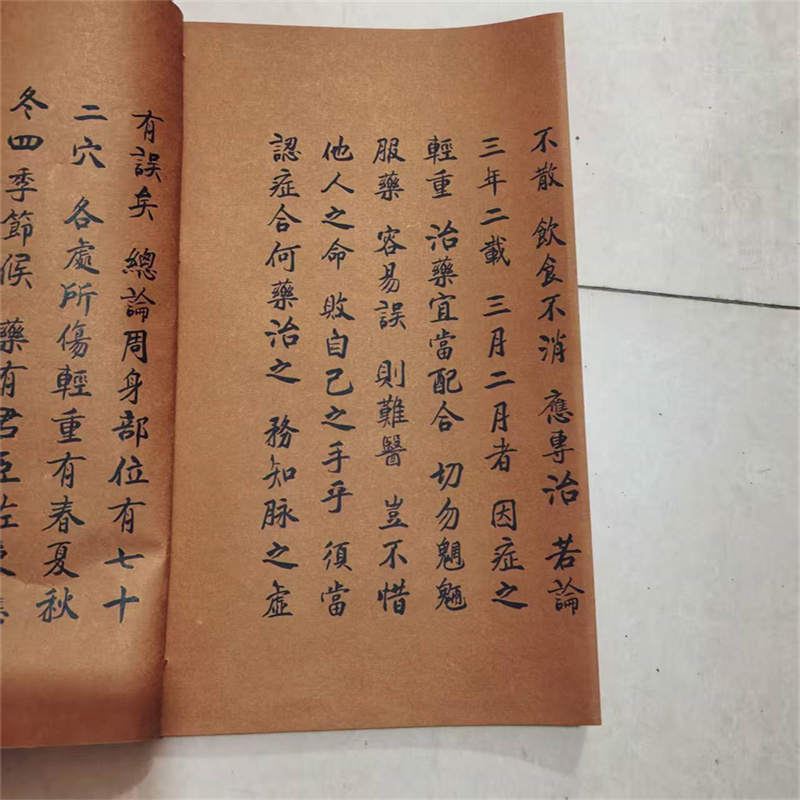 不散 飲食不消 應專治 若論
三年二載 三月二月者 因症之
輕重 治藥宜當配合 切勿魍魎
服藥 容易誤 則難醫 豈不惜
他人之命 敗自己之手乎 須當
認症合何藥治之 務知脉之虛
有誤矣 總論周身部位有七十
二穴 各處所傷輕重有春夏秋
冬四季節候 藥有君臣佐使